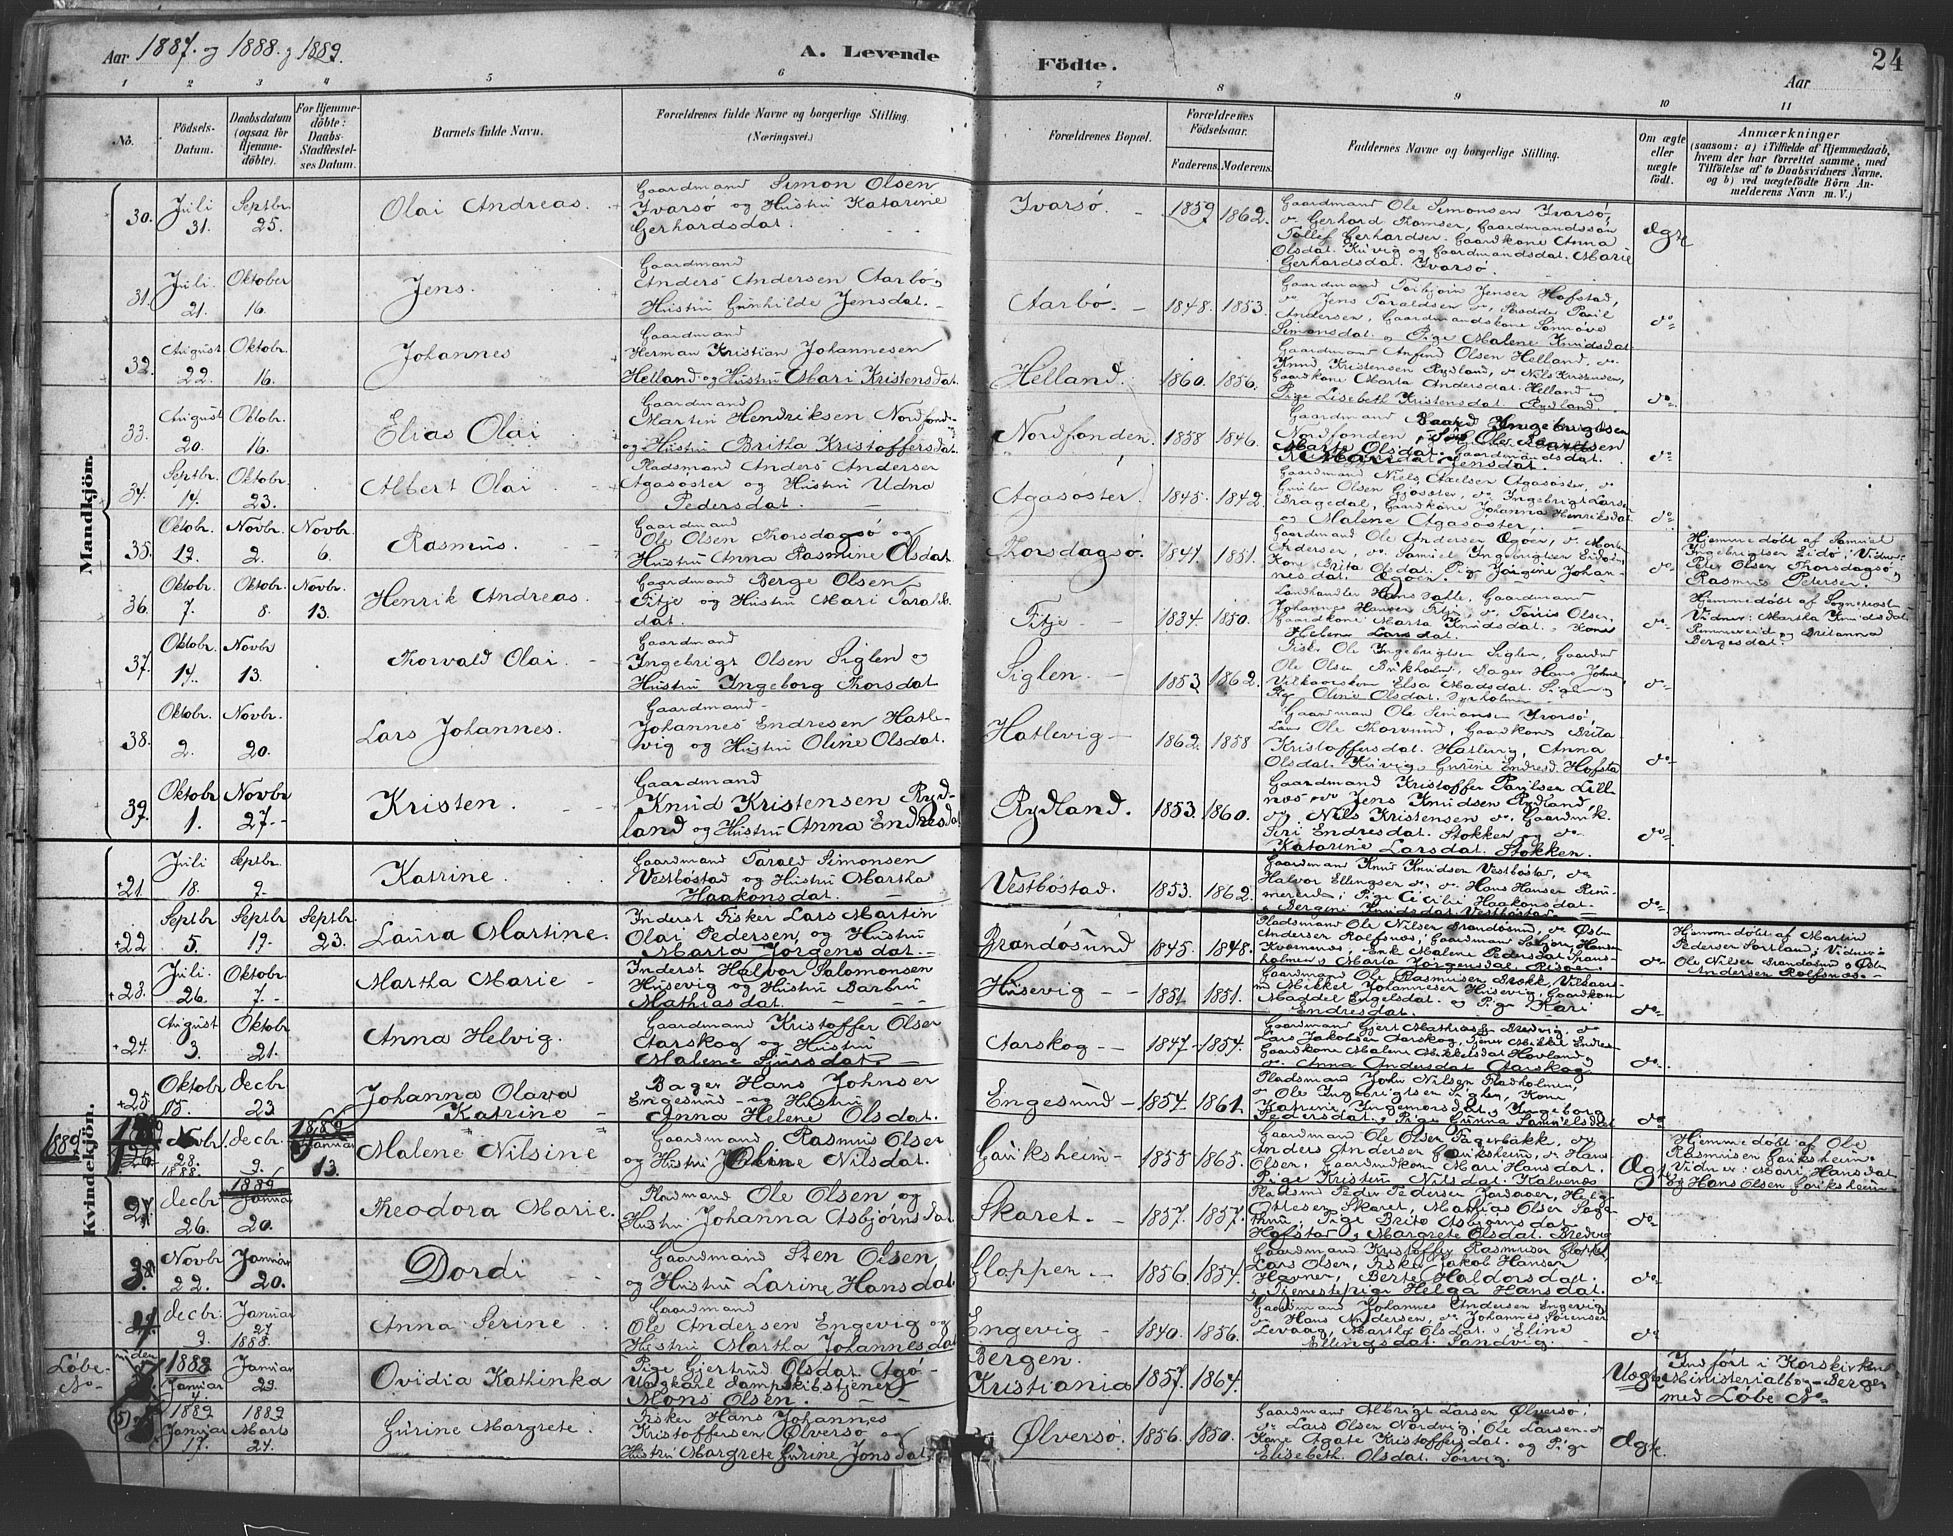 Aar 1887. og 1888. og 1889.
A. Levende Födte.
Aar
24
1 2 3 4 5 6 7 8 9 10 11
No.
Födsels-Datum.
Daabsdatum (ogsaa for Hjemme-döbte).
For Hjemme-döbte: Daabs-Stadfæstel-ses Datum.
Barnets fulde Navn.
Forældrenes fulde Navne og borgerlige Stilling. (Næringsvei.)
Forældrenes Bopæl.
Forældrenes Födselsaar.
Faderens. Moderens.
Faddernes Navne og borgerlige Stilling.
Om ægte eller uægte födt.
Anmærkninger
(saasom: a) i Tilfælde af Hjemmedaab, hvem der har forrettet samme, med Tilföielse af to Daabsvidners Navne. og b) ved uægtefödte Börn An-melderens Navn m. V.)
Mandkjön.
30. Juli 31. Septbr. 25. Olai Andreas. Gaardmand Simon Olsen Ivarsø og Hustru Katarine Gerhardsdat. Ivarsø. 1859 1862. Gaardmand Ole Simonsen Ivarsø, Gerhard Gaardmandssøn Tollef Gerhardsen. Gaardkone Anna Olsdat. Kuvig og Gaardmandsdat. Marie Gerhardsdat. Ivarsø. Ægte
31. Juli. 21. Oktober 16. Jens. Gaardmand Anders Andersen Aarbø og Hustru Gunhilde Jensdat. Aarbø. 1848. 1853. Gaardmand Torbjørn Jensen Hofstad, Jens Taraldsen Andersen, Gaardmandskone Simonsdat. og Pige Malene Knudsdat. do
32. August 22. Oktobr. 16. Johannes Gaardmand Herman Kristian Johannesen Helland og Hustru Mari Kristensdat. Helland. 1860. 1856. Gaardmand Olsen Helland, do Knud Kristensen Rydland, do Nils Kristensen, Gaardkone Marta Andersdat. Helland og Pige Lisebeth Kristensdat. Rydland. do
33. August 20. Oktobr. 16. Elias Olai Gaardmand Martin Hendriksen Nordfond og Hustru Britha Kristoffersdat. Nordfonden. 1858 1846. Gaardmand Baard Ingebrigtsen Nordfonden, Marta Olsdat. Gaardmandsdat. Jensdat. do
34. Septbr. 14. Oktobr. 23. Albert Olai Pladsmand Anders Andersen Agasøster og Hustru Udna Pedersdat. Agasøster. 1845. 1842. Gaardmand Niels Agasøster, do Olsen Gjøsøster, do Ingebrigt Larsen Dragedal, Gaardkone Johanna Henriksdat. og Malene Agasøster. do
35. Oktobr. 12. Novbr. 2. Novbr. 6. Rasmus. Gaardmand Ole Olsen Thorsdagsø og Hustru Anna Rasmine Olsdat. Torsdagsø. 1847. 1851. Gaardmand Ole Andersen Øgøen, Andersen, do Samuel Ingebrigtsen Eidø, Kone Brita Olsdat. Pige Jørgine Johannesdat. Øgøen. do Hjemmedøbt af Samuel Ingebrigtsen Eidø; Vidner Peter Olsen Thorsdagsø og Rasmus Petersen.
36. Oktobr. 7. Oktobr. 8 Novbr. 13. Henrik Andreas. Gaardmand Berge Olsen Fitje og Hustru Mari Taraldsdat. Fitje 1834. 1850. Landhandler Hans Gaardmand Johannes Hansen Fitje, do Olsen, Gaardkone Marta Knudsdat., Kone Helene Larsdat. do Hjemmedøbt af Sognepræst Vidner: Martha Knudsdat. og Britanna Bergesdat.
37. Oktobr. 14. Novbr. 13. Torvald Olai. Gaardmand Ingebrigt Olsen Siglen og Hustru Ingeborg Thorsdat. Siglen. 1853. 1862. Fisker Ole Ingebrigtsen Siglen, Gaardmd Ole Olsen Bukholm, Bager Hans Johns. Elsa Madsdat. Siglen, Pige Oline Olsdat. do
38. Oktobr. 2. Novbr. 20. Lars Johannes. Gaardmand Johannes Endresen Hatlevig og Hustru Oline Olsdat. Hatlevig 1862. 1858 Gaardmand Ole Simonsen Ivarsø, Gaardkone Brita Kristoffersdat. Hatlevig, Anna Olsdat. Kuvig, Gurine Endresd. Hofsta do
39. Oktobr 1. Novbr 27. Kristen. Gaardmand Knud Kristensen Rydland og Hustru Anna Endresdat Rydland. 1853. 1860. Gaardmand Kristoffer Paulsen do Jens Knudsen Rydland, og Nils Kristensen do Gaardmk. Siri Endresdat. Stokken og do Katarine Larsdat. Stokken. do
Kvindekjön.
+21. Juli 18. Septbr. 9. Katrine. Gaardmand Tarald Simonsen Vestbøstad og Hustru Martha Haakonsdat. Vestbøstad. 1853. 1862. Gaardmand Knut Knudsen Vestbøstad, do Halvor Ellingsen do, do Hans Hansen Rem-mereide, Pige Cicilie Haakonsdat. Bergine Knudsdat. Vestbøstad do
+22 Septbr 5. Septbr. 19. Septbr. 23. Laura Martine. Inderst Fisker Lars Martin Olai Pedersen og Hustru Marta Jørgensdat. Brandøsund 1845. 1848. Pladsmand Ole Nilsen Brandøsund, do Østen Andersen Rolfsnæs, Gaardmand Hansen Enke Malene Pedersdat. Marta Jørgensdat. do Hjemmedøbt af Martin Pedersen Sortland, Vidner: Ole Nilsen Brandøsund og Østen Andersen Rolfsnæs.
+23. Juli. 26. Oktober 7. Martha Marie Inderst Halvor Salomonsen Husevig og Hustru Barbru Mathiasdat. Husevig 1851. 1851. Gaardmand Ole Rasmusen Mikkel Johannesen Husevig, Gaardkone Maddel Engelsdat. og Pige Kari Endresdat. do
+24. August 3. Oktobr. 21. Anna Helvig. Gaardmand Kristoffer Olsen Aarskog og Hustru Malene Sjursdat. Aarskog 1847 1854. Gaardmand Gjert Mathias Bredvig, do Lars Jakobsen Aarskog, Tjener Mikkel Gaardkone Malene Mikkelsdat Hovland, Anna Andersdat. Aarskog. do
+25. Oktobr 15. decbr. 23 Johanna Olava Katrine Bager Hans Johnsen Engesund og Hustru Anna Helene Olsdat. Engesund 1854. 1861. Pladsmand John Nilsen Pladholmen, do Ole Ingebrigtsen Siglen, Kone Katrine Ingemorsdat., Ingeborg Pedersdat., Pige Gunna Samuelsdat do
1889. 26. Novbr. 28. 1888. decbr. 9. 1889 Januar 13. Malene Nilsine Gaardmand Rasmus Olsen og Hustru Oline Nilsdat. Gauksheim 1855 1865. Gaardmand Ole Olsen Fagerbakk, do Anders Andersen Gauksheim, do Hans Olsen, Gaardmandkone Mari Hansdat. Pige Kristen Nilsdat. Kalvenæs Ægte Hjemmedøbt af Ole Rasmusen Gauksheim. Vidner: Mari Hansdat. og Hans Olsen Gauksheim.
27. decbr. 26. 1889 Januar 20. Theodora Marie. Pladsmand Ole Olsen og Hustru Johanna Asbjørnsdat Skaret. 1857. 1857. Pladsmd Peder Pedersen Ottesen Skaret, Mathias Olsen Pige Brita Asbjørnsdat Hofstad, Margrete Olsdat. Bredvig do
3. Novbr 22. Januar 20. Dordi Gaardmand Sten Olsen og Hustru Larine Hansdat Gloppen. 1856. 1854. Gaardmand Kristoffer Rasmusen Lars Olsen, Fisker Jakob Hansen Havnen, Berte Haldorsdat. Tjenestepige Helga Hansdat. do
4 decbr. 9. Januar 27 1888. Anna Serine Gaardmand Ole Andersen Engevig og Hustru Martha Johannesdat Engevig 1840. 1856. Gaardmand Johannes Andersen Engevig, Hans Andersen, do Johannes Sørensen Levaag, Martha Olsdat. Eline Ellingsdat. Sandvig. do
Løbe-No uden 1888 Januar 4. Januar 29. Ovidia Kathinka Pige Gjertrud Olsdat. Agø- Ungkarl Dampskibstjener Mons Olsen. Bergen. Kristiania 1857. 1864. Uægte Indført i Korskirkens Ministerialbog Bergen med Løbe No
(5) 1889 Januar 17. 1889 Marts 24. Gurine Margrete. Fisker Hans Johannes Kristoffersen Ølversø og Hustru Margrete Gurine Jonsdat. Ølversø. 1856. 1850. Gaardmand Albrigt Larsen Ølversø, do Lars Olsen Nordvig, Ole Larsen do Kone Agate Kristoffersdat. og Pige Elisebeth Olsdat. Sørvig. Ægte.